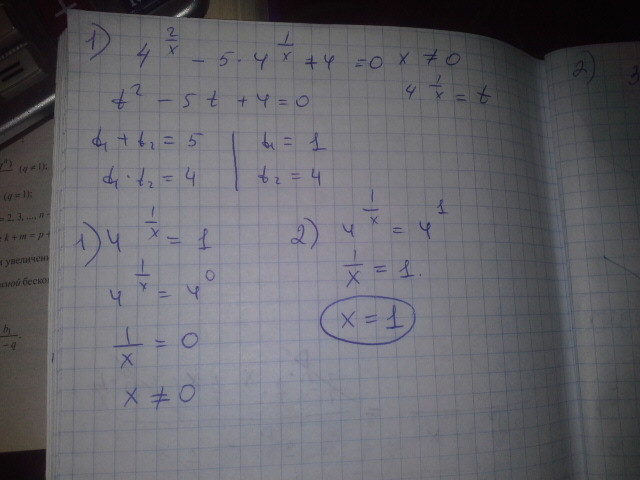 1) 4^{2/x} - 5 · 4^{1/x} + 4 = 0 x ≠ 0
4^{1/x} = t
t² - 5t + 4 = 0
t₁ + t₂ = 5 | t₁ = 1
t₁ · t₂ = 4 | t₂ = 4
1) 4^{1/x} = 1
4^{1/x} = 4^0
1/x = 0
x ≠ 0
2) 4^{1/x} = 4^1
1/x = 1.
x = 1
2) 3
(q ≠ 1);
(q = 1);
= 2, 3, ..., n -
k + m = p +
увеличен
ной беско
b₁
-q